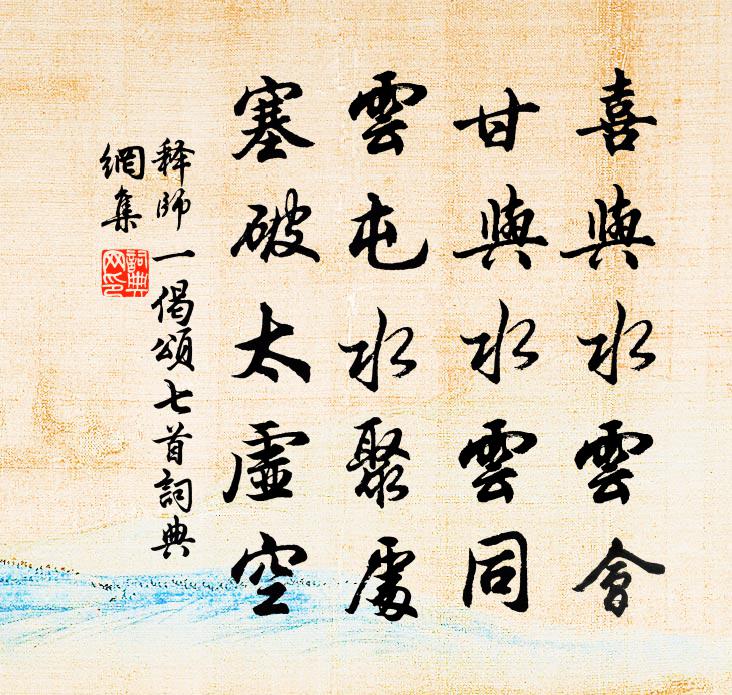 喜與水雲會
甘與水雲同
雲屯水聚處
塞破太虛空
释師一偈頌七首詞典
網集
詞典
网印